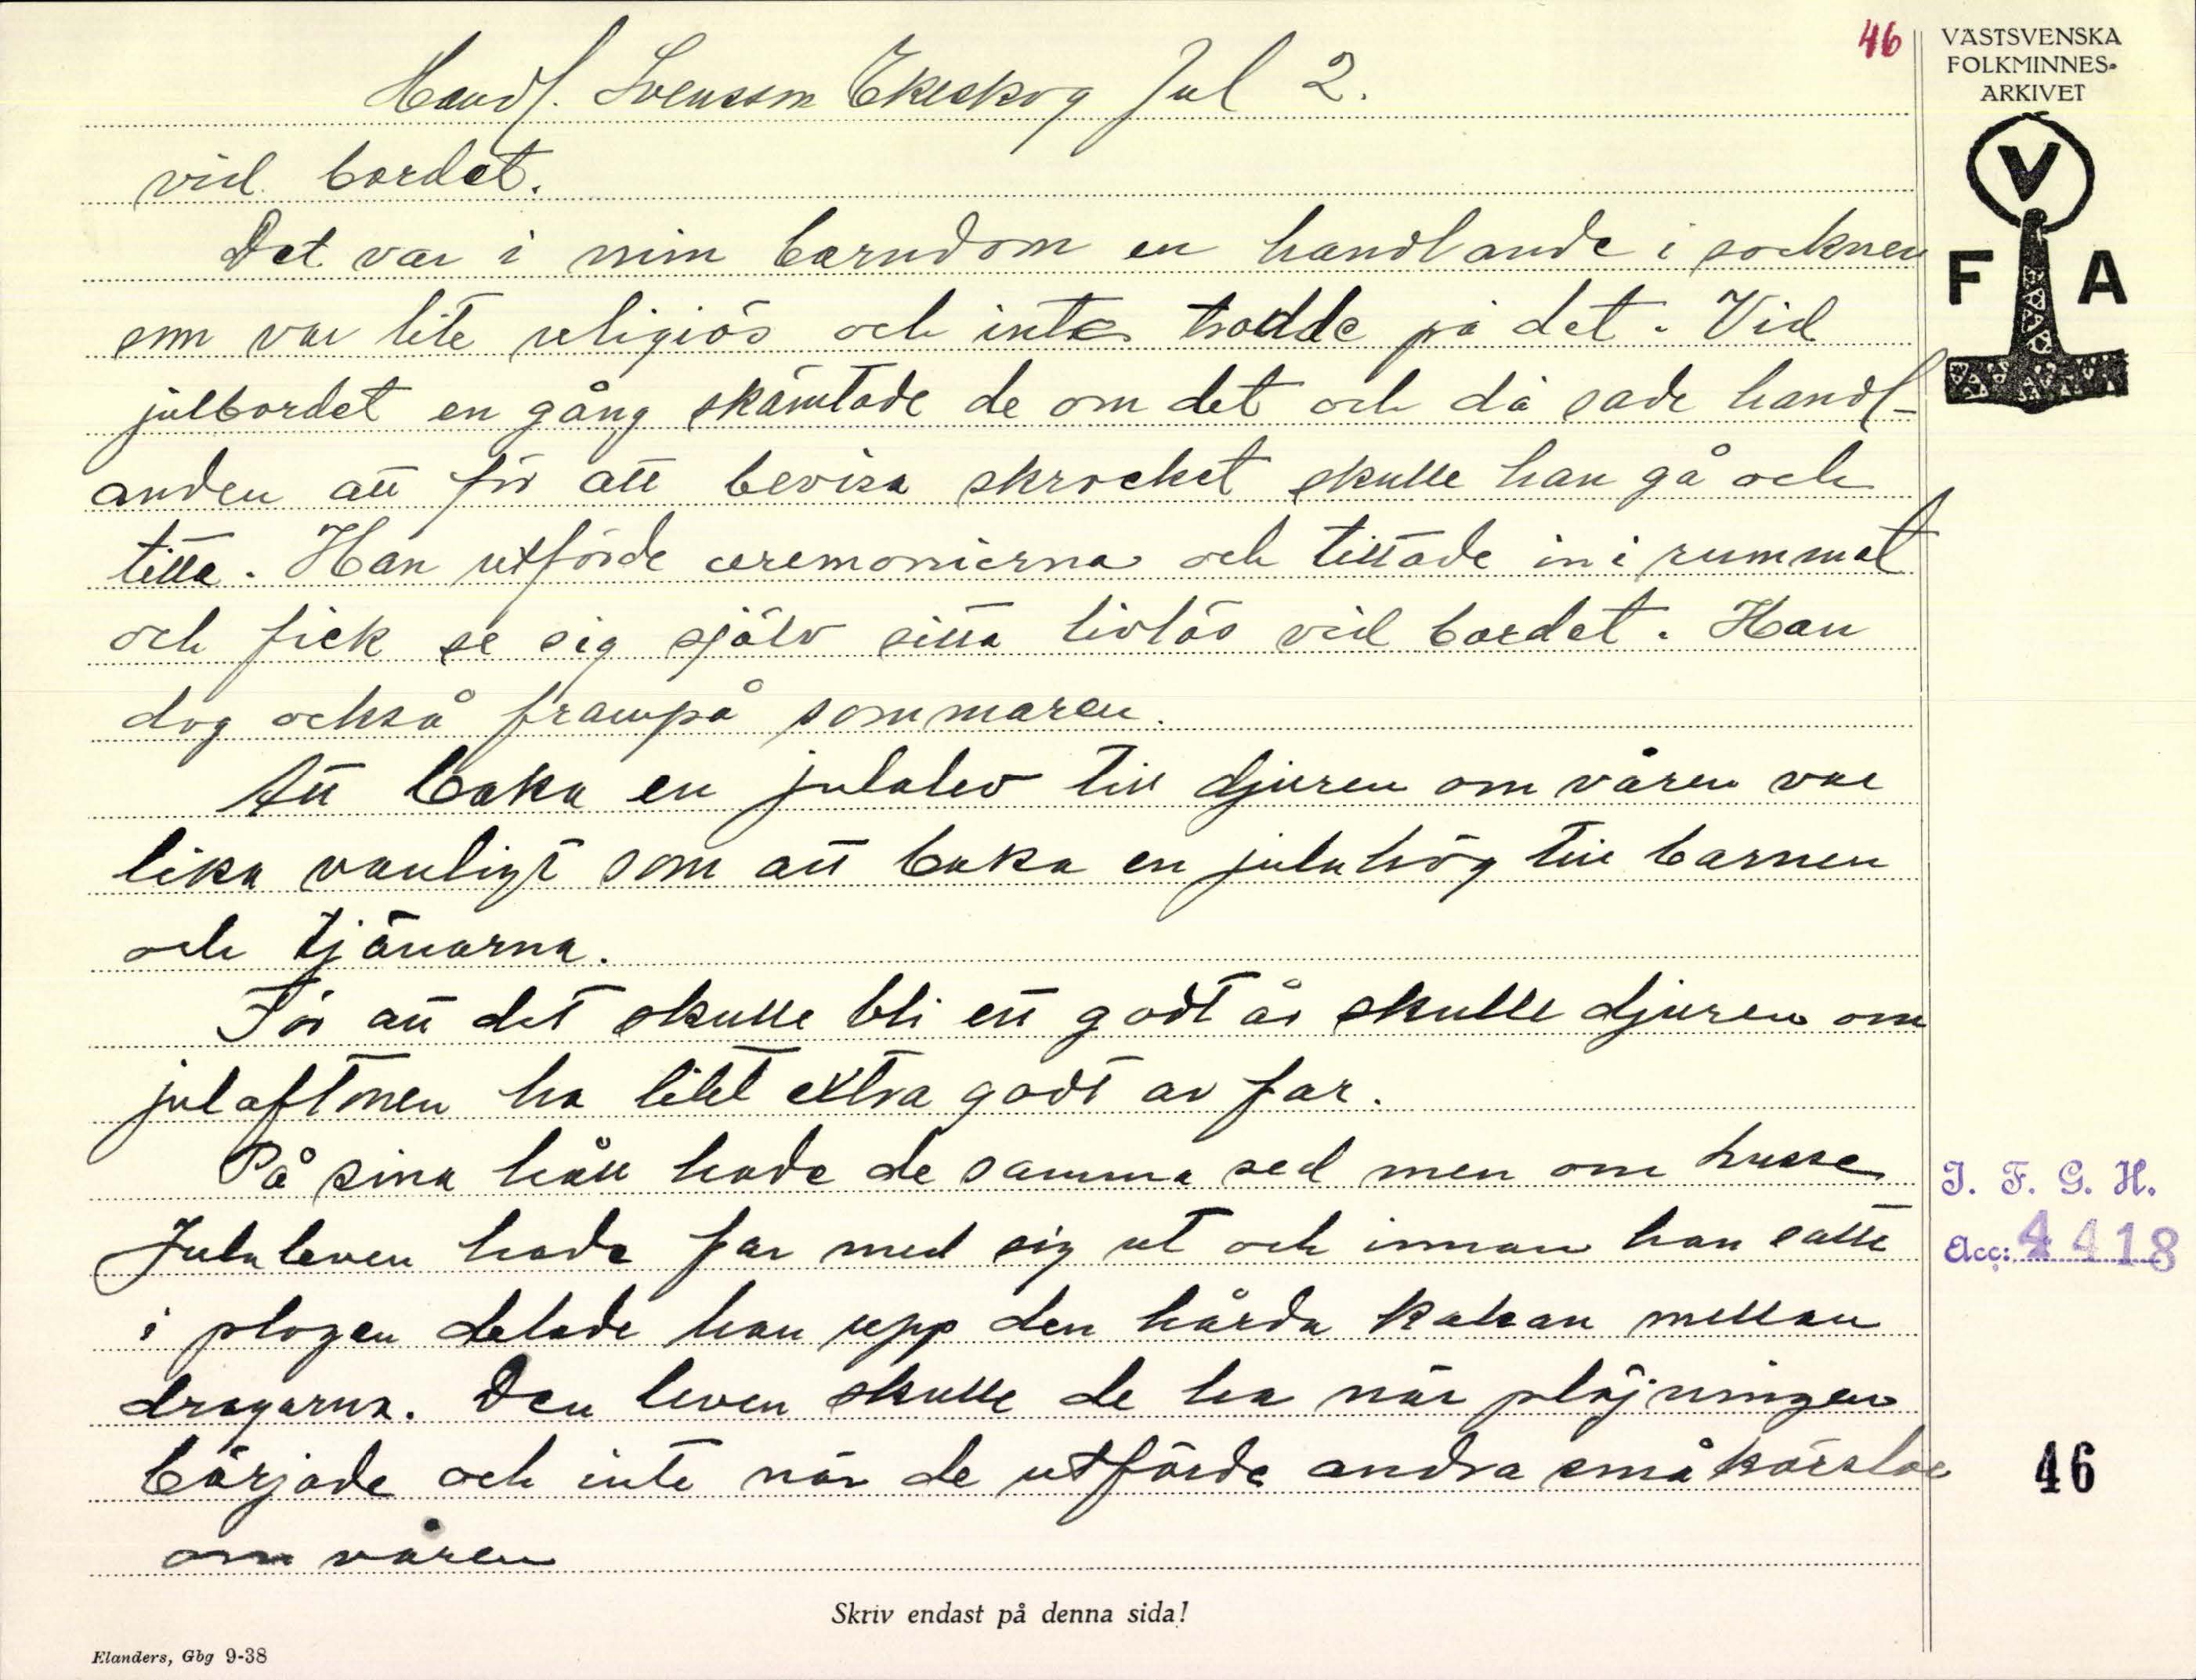 46
VÄSTSVENSKA
FOLKMINNES-
ARKIVET
V
F A
Handl. Svensson Ekeskog Jul 2.
vid bordet.
Det var i min barndom en handlande i socknen
som var lite religiös och inte trodde på det. Vid
julbordet en gång skämtade de om det och då sade handl-
anden att för att bevisa skrocket skulle han gå och
titta. Han utförde ceremonierna och tittade in i rummet
och fick se sig själv sitta livlös vid bordet. Han
dog också frampå sommaren.
Att baka en julalev till djuren om våren var
lika vanligt som att baka en julahög till barnen
och tjänarna.
För att det skulle bli ett godt år skulle djuren om
julaftonen ha litet extra godt av far.
På sina håll hade de samma sed men om lusse
Julaleven hade far med sig ut och innan han satte
i plogen delade han upp den hårda kakan mellan
dragarna. Den leven skulle de ha när plöjningen
började och inte när de utförde andra småkörslor
om våren
I. F. G. H.
Acc: 4418
46
Skriv endast på denna sida!
Elanders, Gbg 9-38